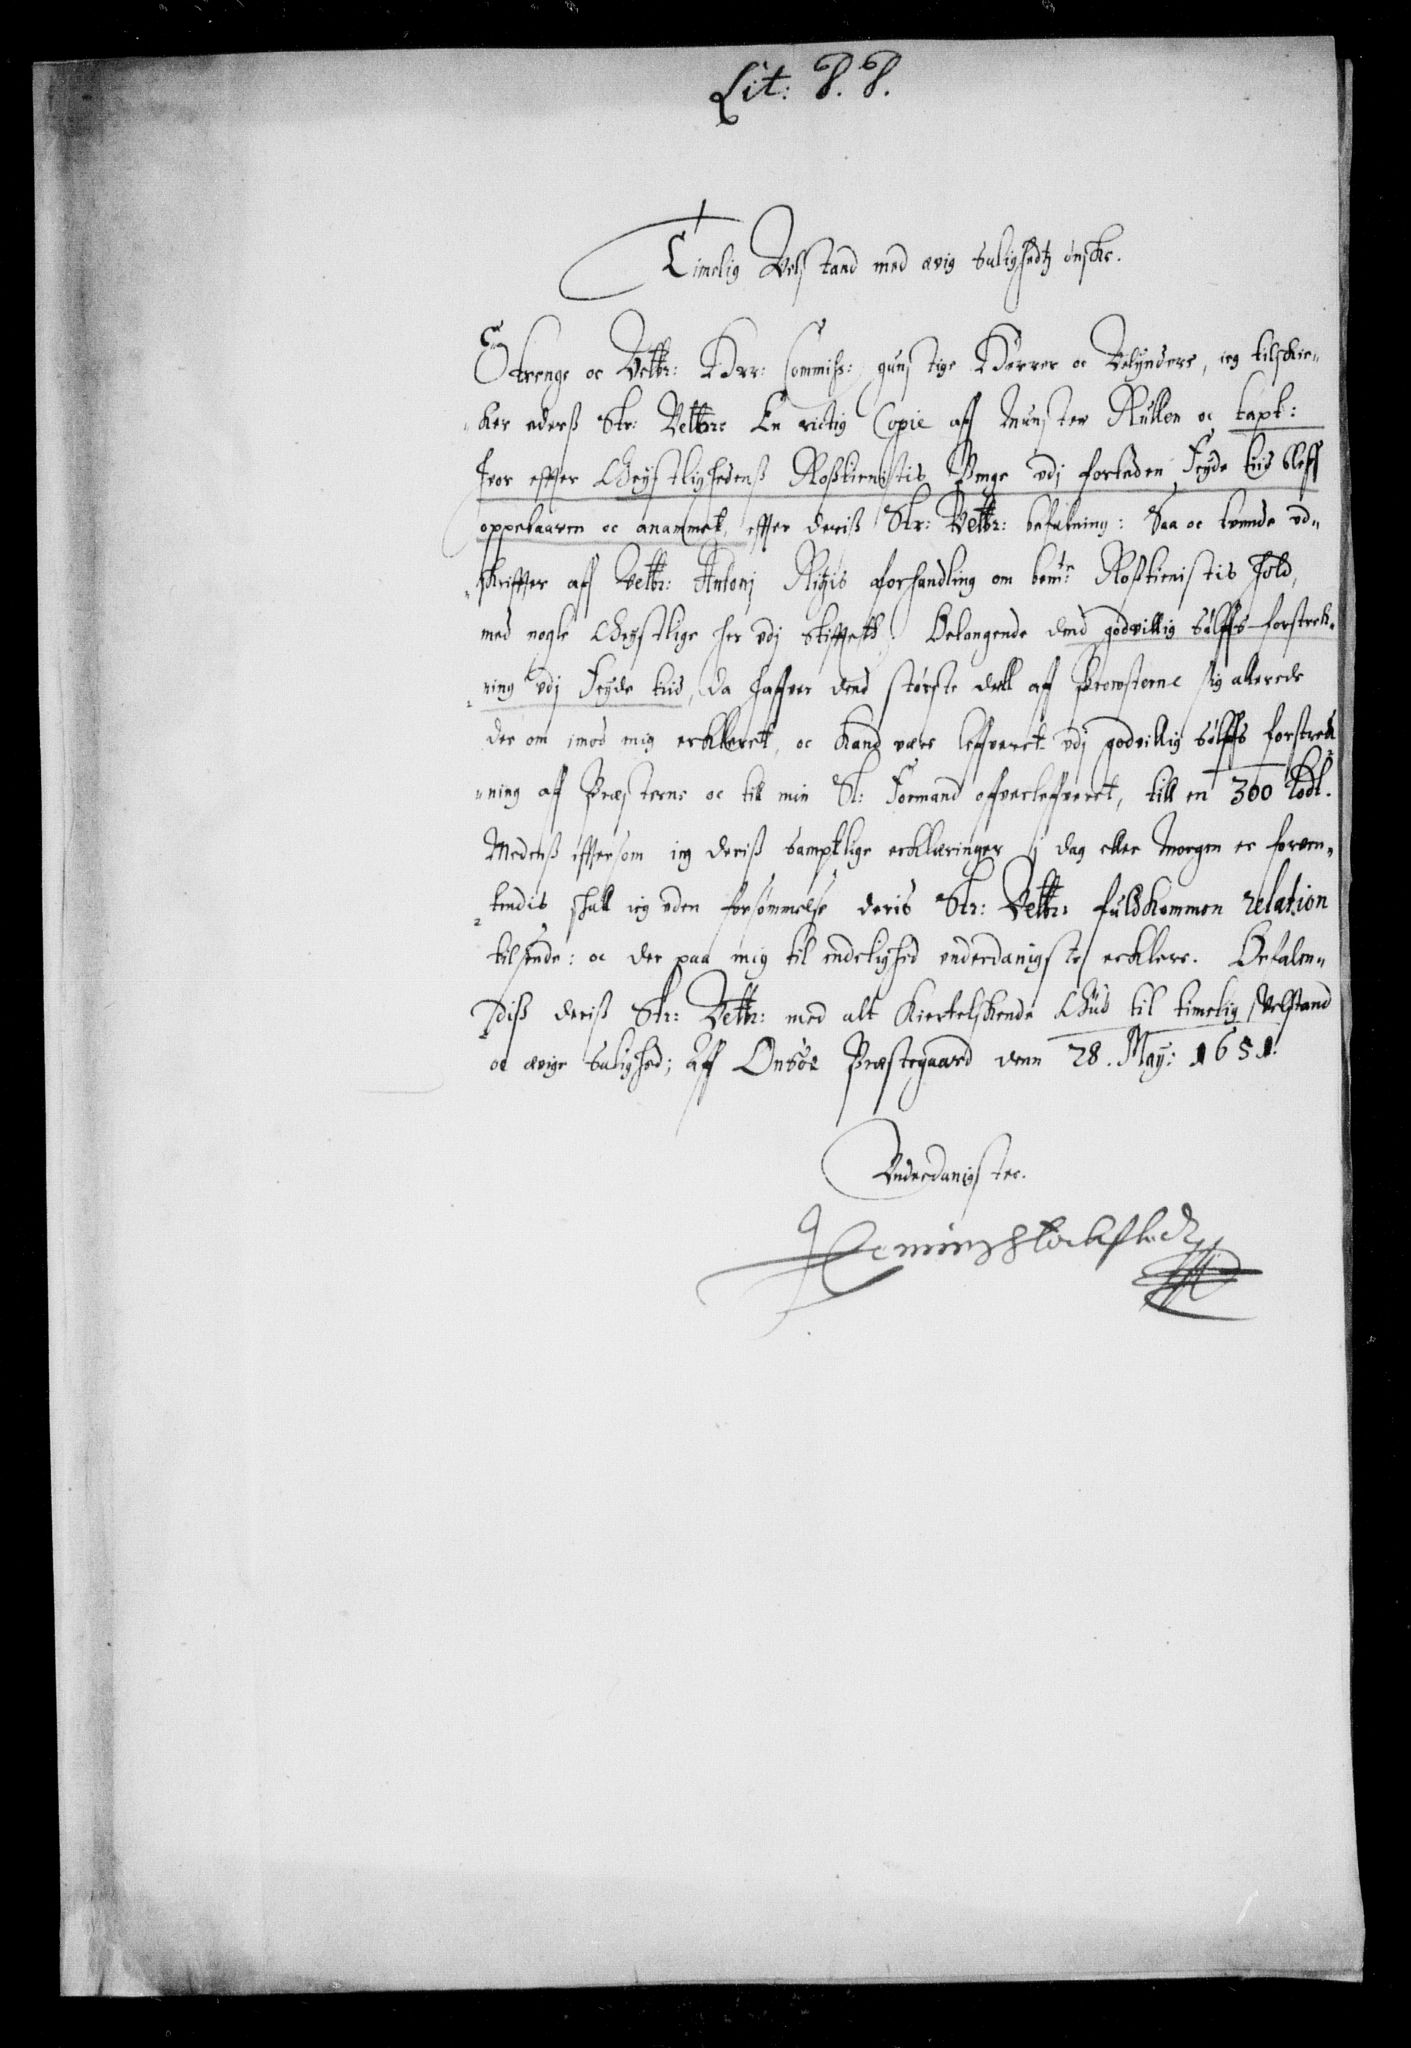 Lit: P. P.
Timelig Velstand med ævig Salighedz ønske.
Strenge oc Velbr: Herr: Commiss: gunstige Herrer oc Velyndere, ieg tilskic„
„ker eders Str: Velbr: En rictig Copie aff Munster Rullen oc taxt:
hvor effter Gheystlighedens Rosztienistis Penge vdj forleden Feyde tiid bleff
oppebaaren oc anammet, effter deris Str: Velbr: befalning: Saa oc tvende vd„
„skriffter aff Velbr: Antonj Ritzis forhandling om bemte Rosztienistis hold,
med nogle Gheystlige her vdj Stifftett. Belangende dend godvillig Sølffs forstreck„
„ning vdj Feyde tiid, da haffver dend største deell aff Prousterne sig allerede
der om imod mig erkleret, oc kand være leffveret vdj godvillig Sølffs forstreck„
„ning aff Præsterne oc till min Sl: Formand offverleffveret, till en 360 Lodt.
Medens effter som ieg deris samptlige erklæringer j dag eller Morgen er forven„
„tendis shall ieg vden forsømmelse deris Str: Velbr: fuldkommen relation
tilsende: oc der paa mig til endelighed vnderdanigste erklere. Befalen„
„dis deris Str: Velbr: med alt kiertelskende Ghud til timelig Velstand
oc ævige Salighed; Aff Onsöe Præstegaard denn 28. May: 1651.
Vnderdanigster.
Henning Stockfledt